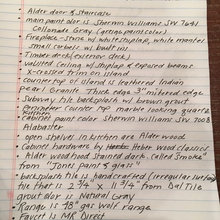 Alder door & staircase
• main paint color is Sherwin Williams SW 7641
Collonade Gray (greige paint color)
• Fireplace - stone w/ white shiplap, white mantle
small corbels w/ built ins
• Timber decks (exterior deck)
• Vaulted Ceiling w/ shiplap & exposed beams
• X-crossed trim on island
• countertop of island is Leathered Indian
pearl Granite Thick edge 3" mitered edge
• Subway tile backsplash w/ brown grout
• perimeter counter top marble looking quartz
• Kitchen cabinet paint color Sherwin Williams SW 7008
Alabaster
• open shelves in kitchen are Alder wood
• Cabinet hardware by Heber Wood classics
• Alder wood hood stained dark. Called "Smoke"
from "Tonti paint & glass"
• backsplash tile is handcrafted (irregular surface)
tile that is 2 3/4 x 11 3/4 from Dal Tile
grout color is Natural Gray
• Range is 48" gas Wolf range
• Faucet is MK Direct